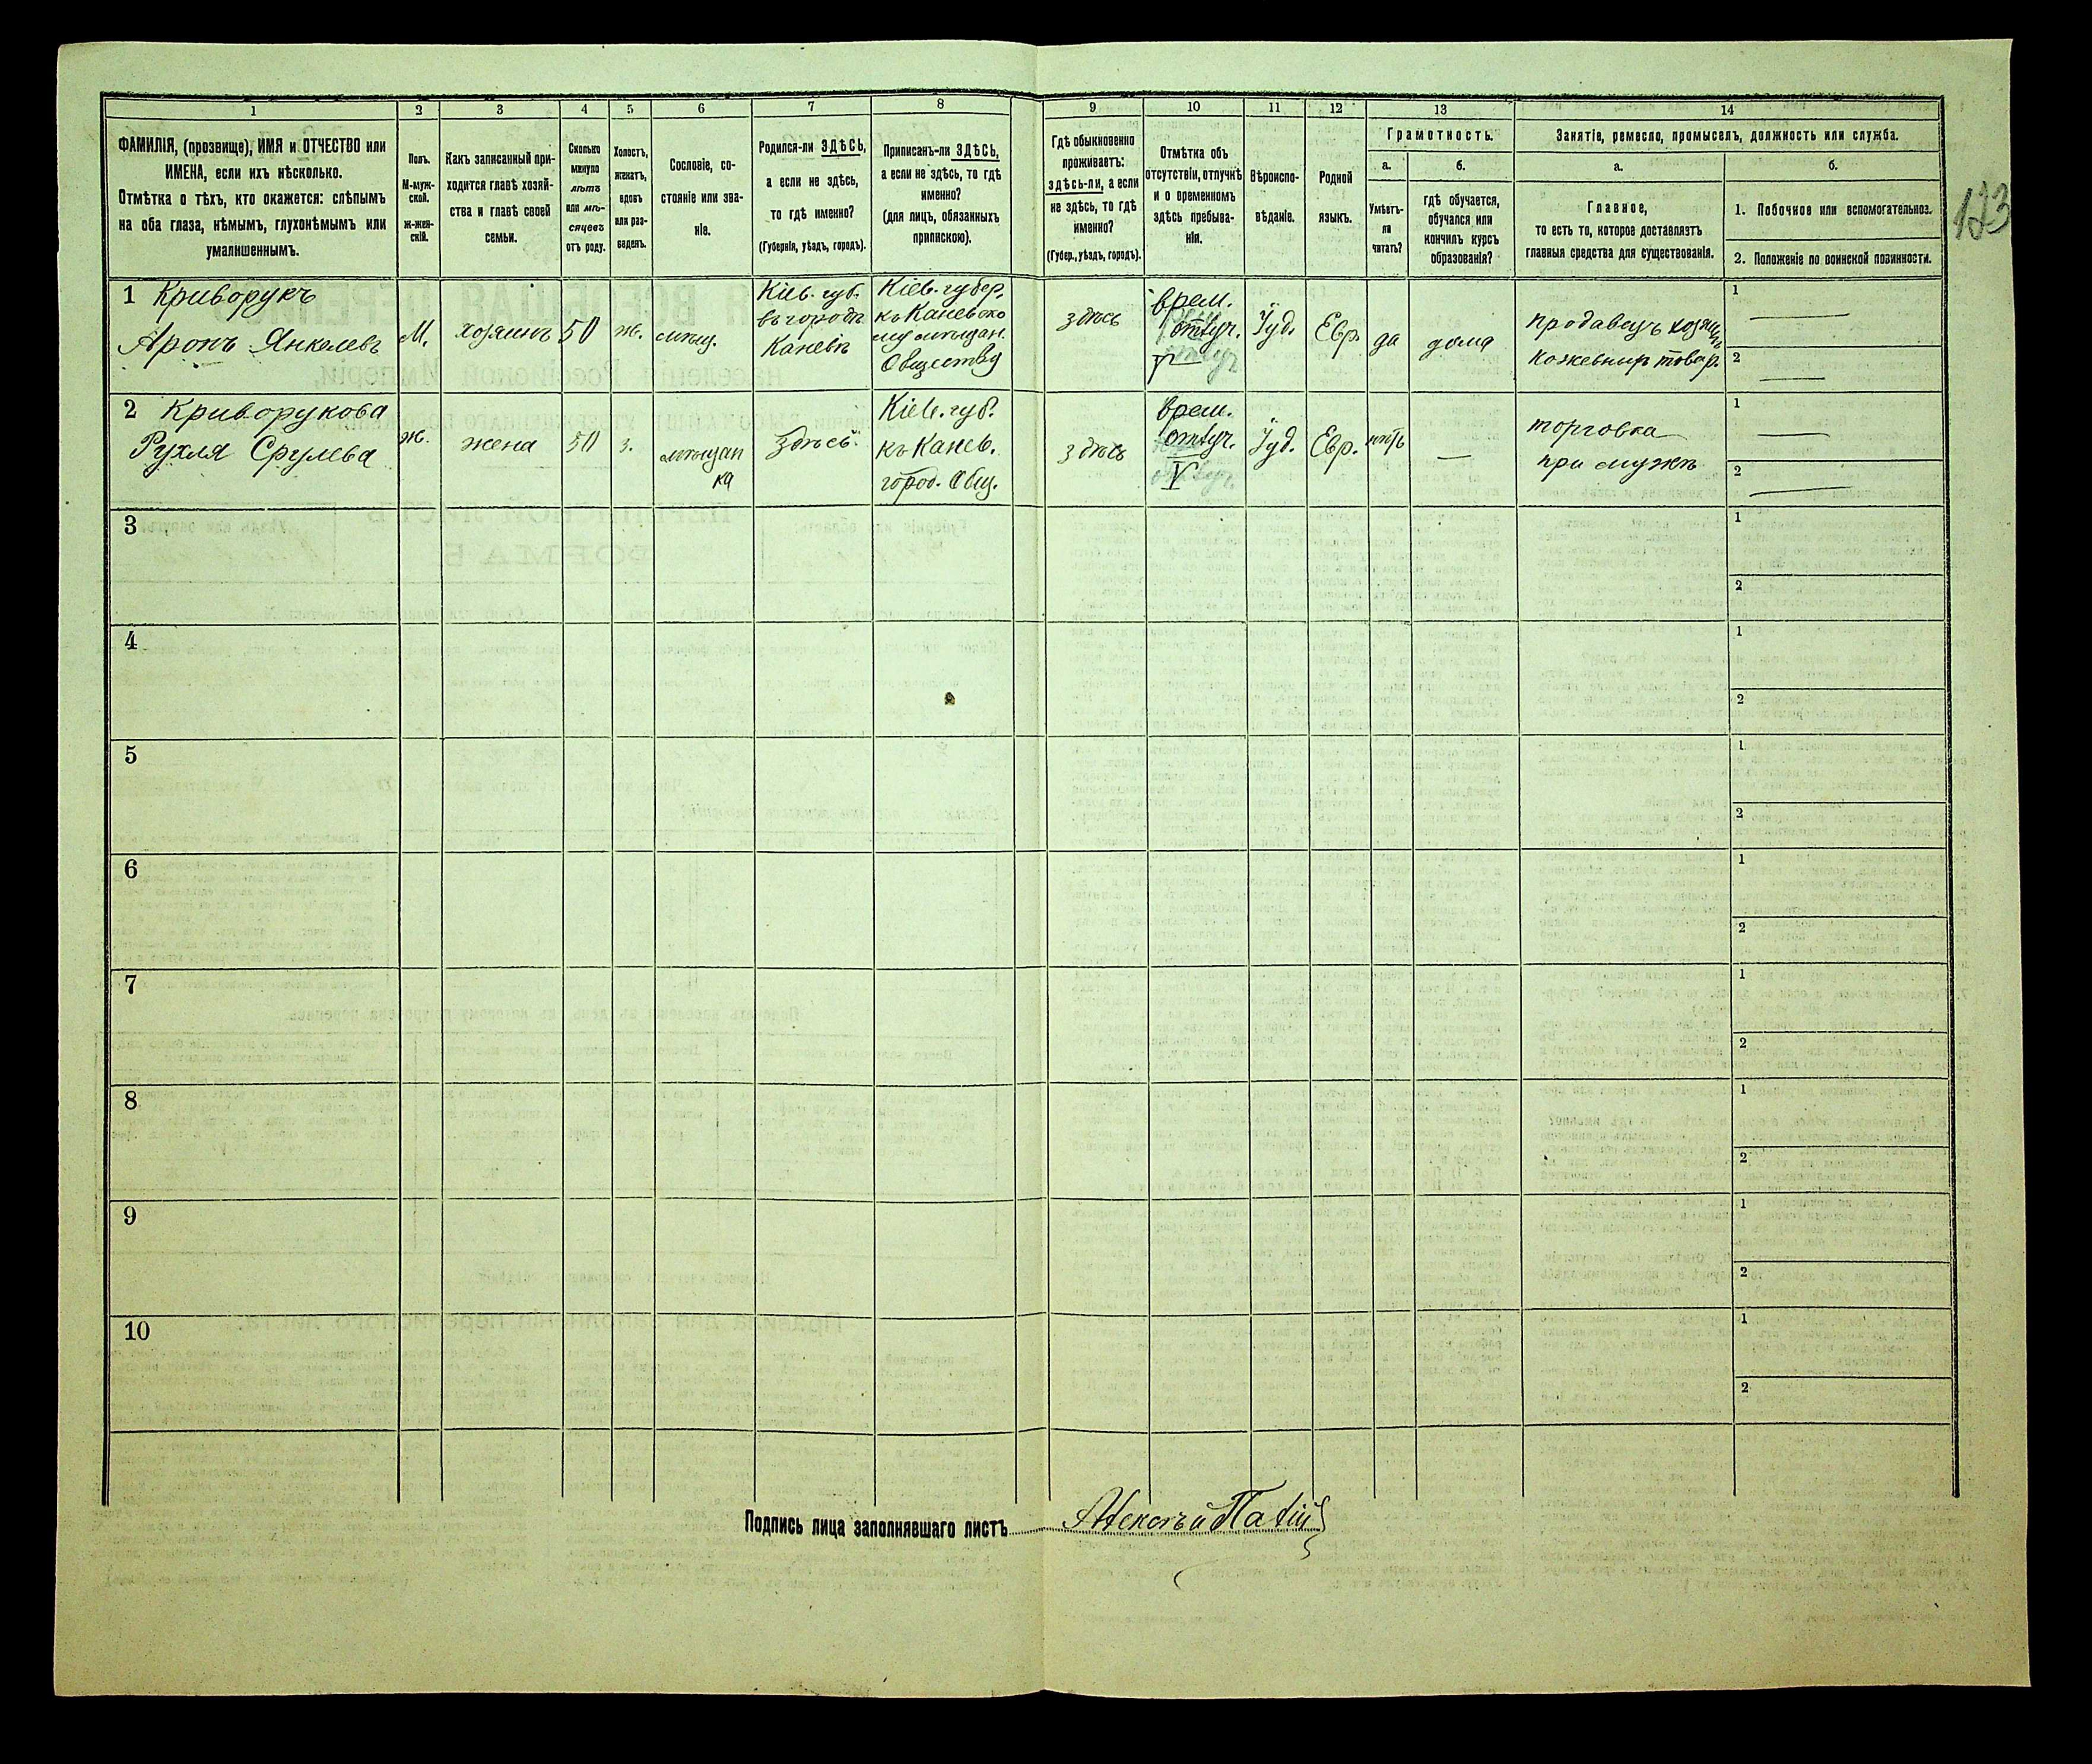 1 2 3 4 5 6 7 8 9 10 11 12 13 14
ФАМИЛІЯ, (прозвище), ИМЯ и ОТЧЕСТВО или
ИМЕНА, если ихъ нѣсколько.
Отмѣтка о тѣхъ, кто окажется: слѣпымъ
на оба глаза, нѣмымъ, глухонѣмымъ или
умалишеннымъ.
Полъ.
М-муж-
ской.
Ж-жен-
скій.
Какъ записанный при-
ходится главѣ хозяй-
ства и главѣ своей
семьи.
Сколько
минуло
лѣтъ
или мѣ-
сяцевъ
отъ роду.
Холостъ,
женатъ,
вдовъ
или раз-
веденъ.
Сословіе, со-
стояніе или зва-
ніе.
Родился-ли ЗДѢСЬ,
а если не здѣсь,
то гдѣ именно?
(Губернія, уѣздъ, городъ).
Приписанъ-ли ЗДѢСЬ,
а если не здѣсь, то гдѣ
именно?
(для лицъ, обязанныхъ
припискою).
Гдѣ обыкновенно
проживаетъ:
здѣсь-ли, а если
не здѣсь, то гдѣ
именно?
(Губер., уѣздъ, городъ).
Отмѣтка объ
отсутствіи, отлучкѣ
и о временномъ
здѣсь пребыва-
ніи.
Вѣроиспо-
вѣданіе.
Родной
языкъ.
Грамотность.
а.
Умѣетъ-
ли
читать?
б.
гдѣ обучается,
обучался или
кончилъ курсъ
образованія?
Занятіе, ремесло, промыселъ, должность или служба.
а.
Главное,
то есть то, которое доставляетъ
главныя средства для существованія.
б.
1. Побочное или вспомогательное.
2. Положеніе по воинской повинности.
1 Криворукъ
Аронъ Янкелевъ
М.
хозяинъ
50
ж.
мѣщ.
Кіев. губ.
въ городѣ
Каневѣ
Кіев. губер.
къ Каневско
му мѣщан.
Обществу
здѣсь
врем.
отлуч.
Іуд.
Евр.
да
дома
продавецъ
кожевныхъ товар.
1
2
2 Криворукова
Рухля Срулева
ж.
жена
50
з.
мѣщан
ка
Здѣсь.
Кіев. губ.
къ Канев.
город. Общ.
здѣсь
врем.
отлуч.
V
Іуд.
Евр.
нѣтъ
—
торговка
при мужѣ
1
2
3
1
2
4
1
2
5
1
2
6
1
2
7
1
2
8
1
2
9
1
2
10
1
2
Подпись лица заполнявшаго листъ